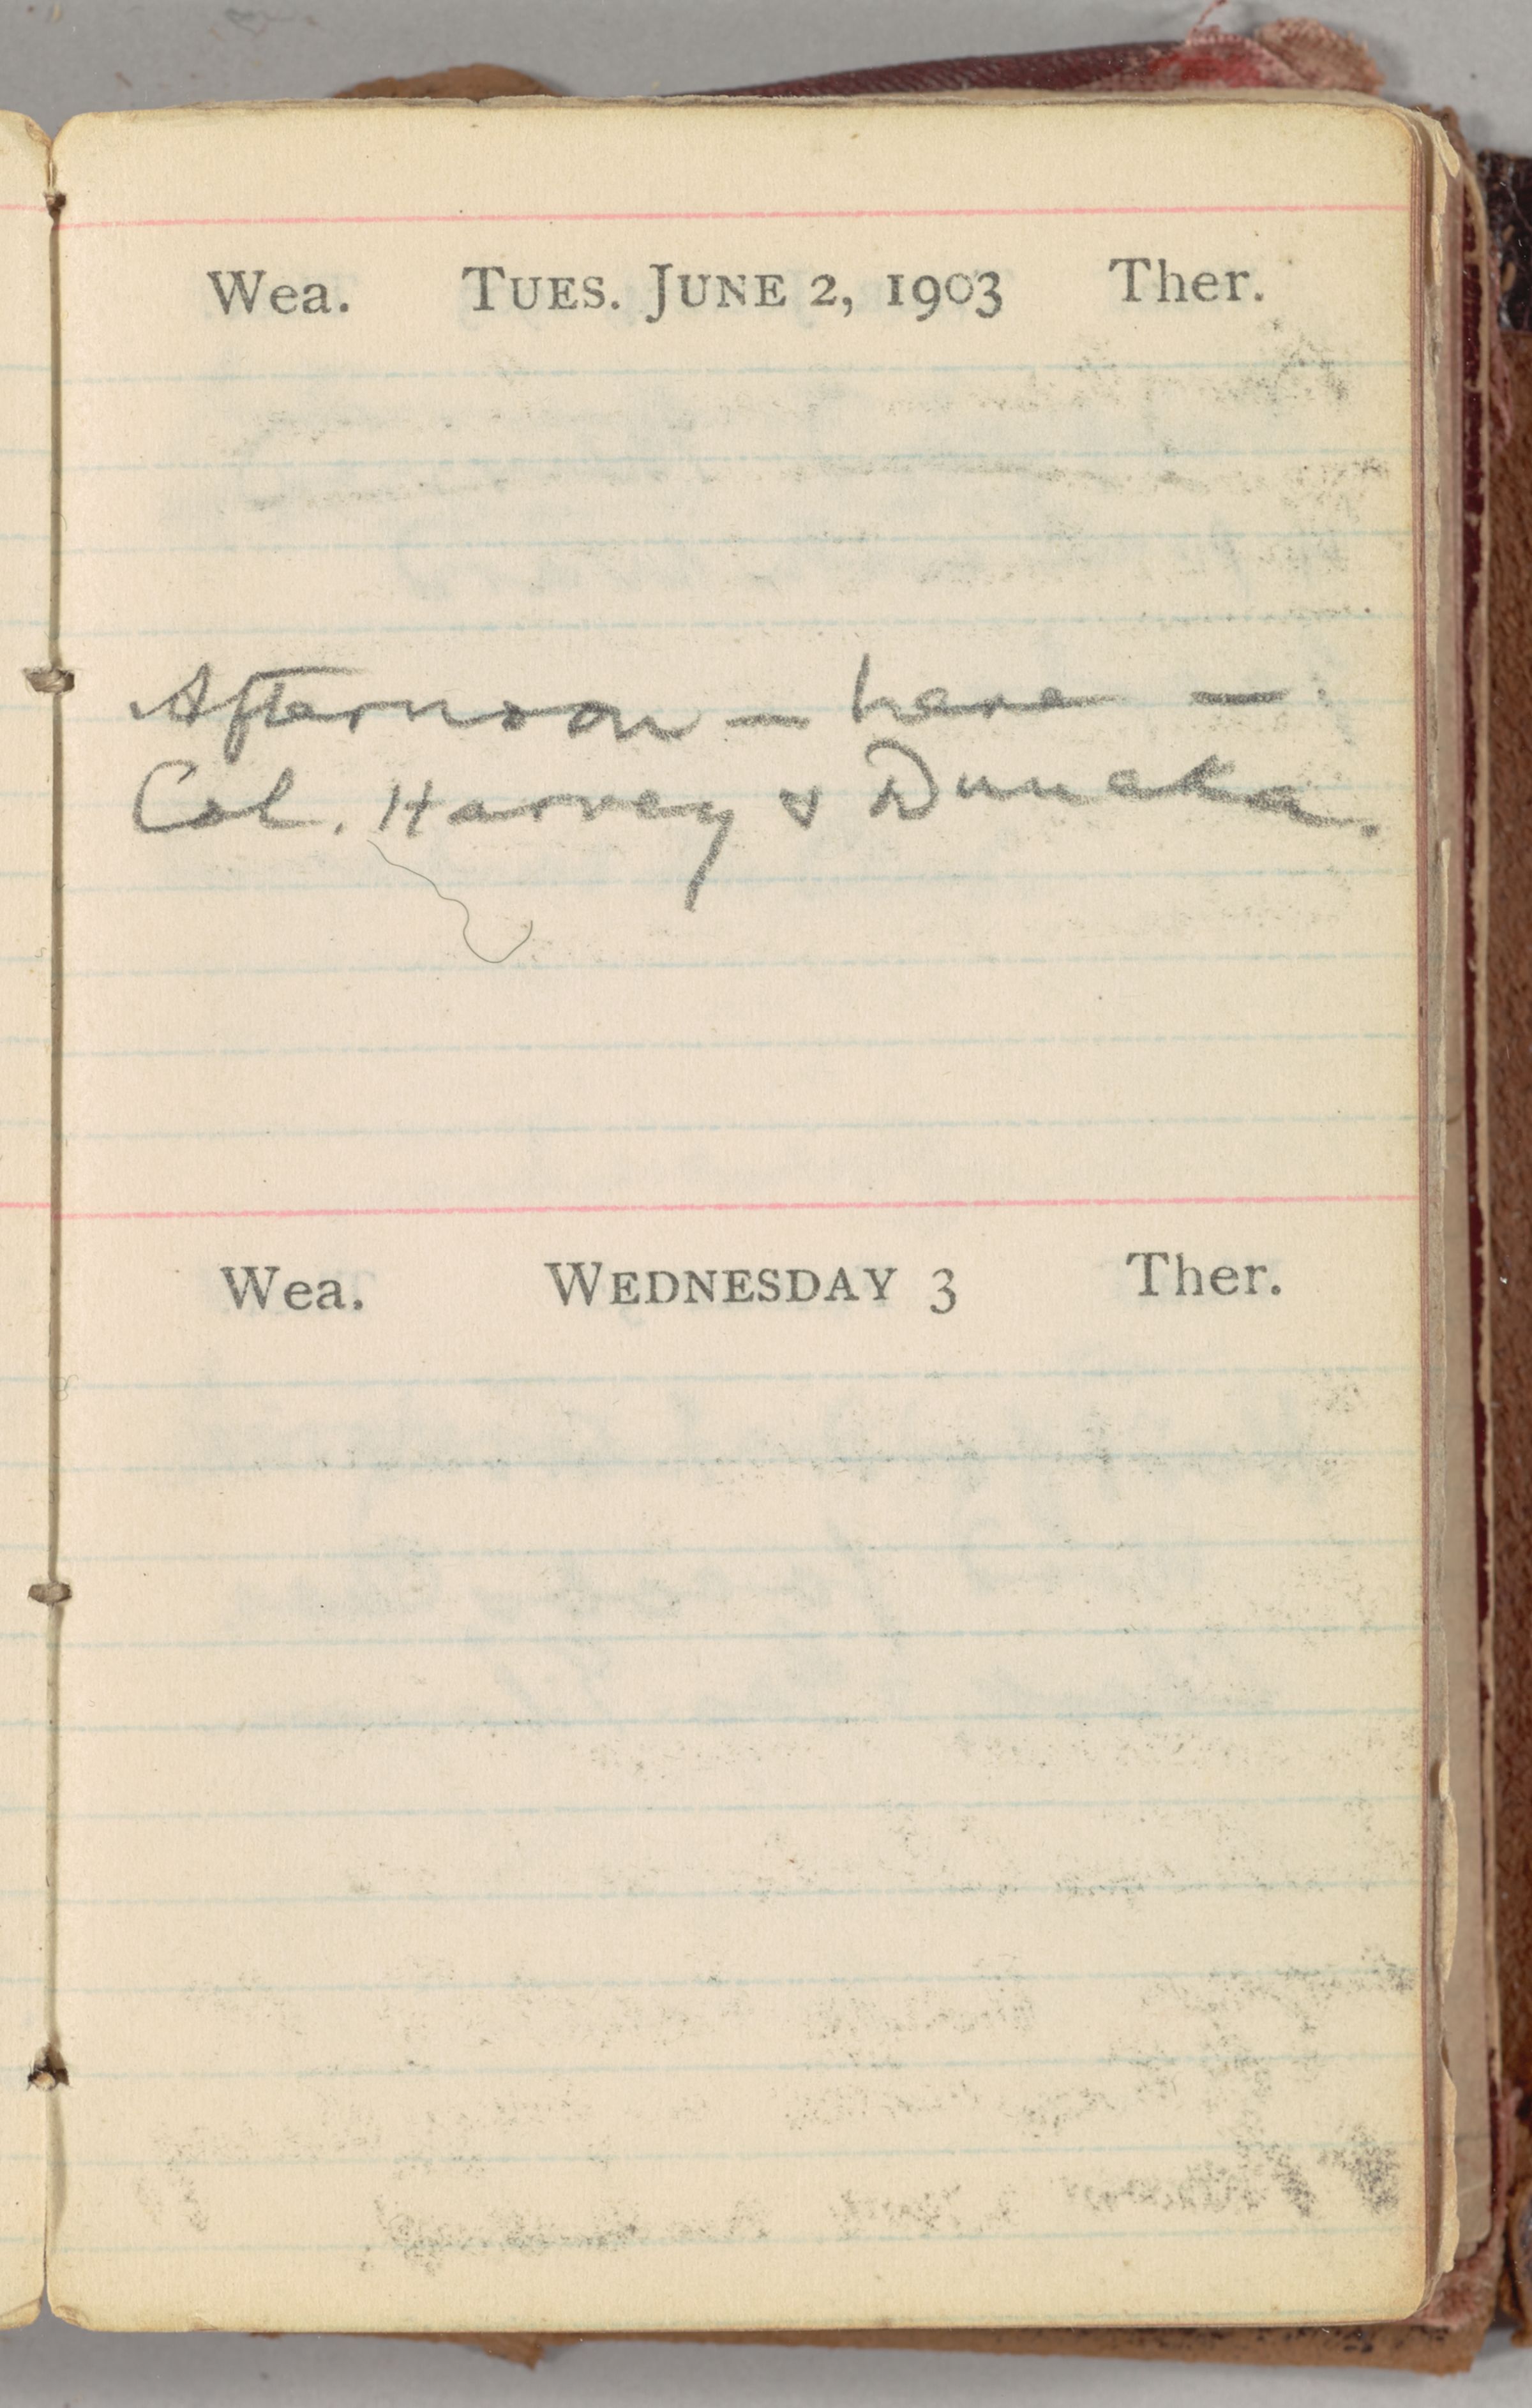 Wea. TUES. JUNE 2, 1903 Ther.
Afternoon — here —
Col. Harvey & Duneka.
Wea. WEDNESDAY 3 Ther.